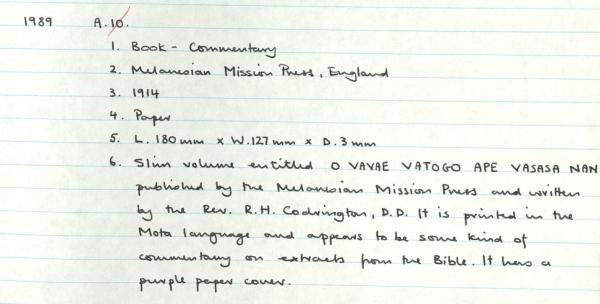 1989 A.10.
1. Book - Commentary
2. Melanesian Mission Press, England
3. 1914
4. Paper
5. L. 180mm x W.127mm x D.3mm
6. Slim volume entitled O VAVAE VATOGO APE VASASA NAN
published by the Melanesian Mission Press and written
by the Rev. R.H. Codrington, D.D. It is printed in the
Mota language and appears to be some kind of
commentary on extracts from the Bible. It has a
purple paper cover.